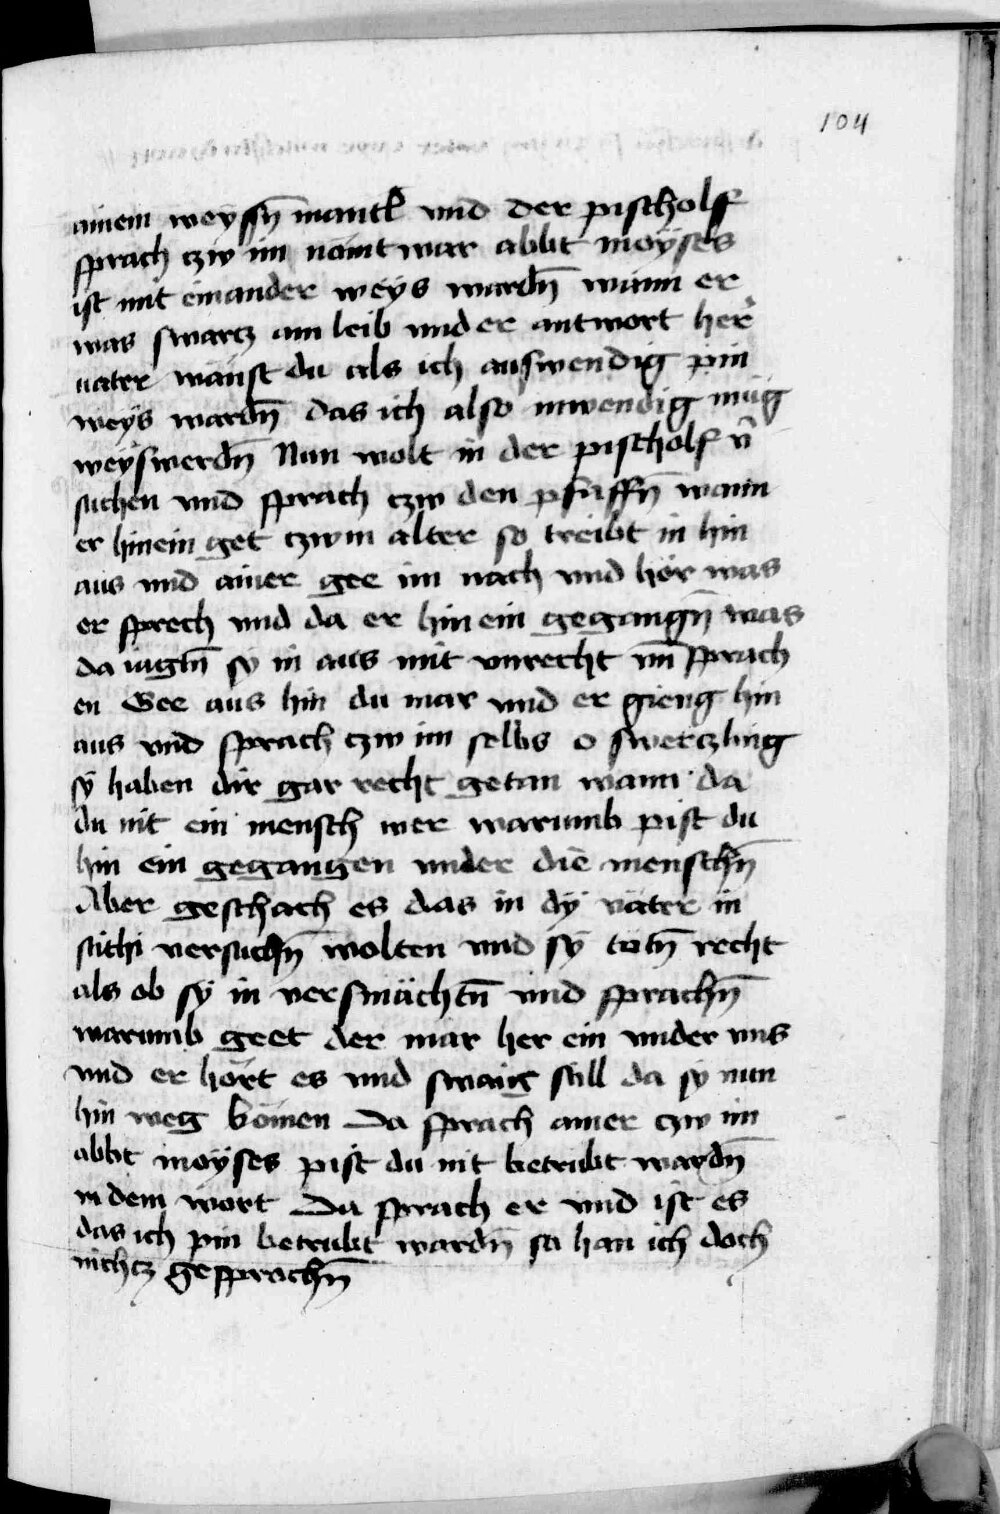 104
ainem weyssn̄ mantl̄ vnd der pischolff
sprach czw im nömt war abbt moÿses
ist mit einander weÿs wardn̄ wann er
was swartz am leib vnd er antwort her
vater wänst du als ich auswendig pin
weÿs wardn̄ das ich also inwendig müg
weÿs werdn̄ Nun wolt in der pischolf v̄
suchen vnd sprach czw den pfaffn̄ wann
er hinein get czwm alter so treibt in hin
aus vnd ainer gee im nach vnd hör was
er sprech vnd da er hin ein gegangn̄ was
da iagtn̄ sÿ in aus mit vnrecht vn̄ sprach
en Gee aus hin du mar vnd er gieng hin
aus vnd sprach czw im selbs o swerczling
sÿ haben dir gar recht getan wann da
du nit ein mensch wer warumb pist du
hin ein gegangen vnder die menschn̄
Aber geschach es das in dÿ väter in
sithi versuchn̄ wolten vnd sÿ tötn̄ recht
als ob sÿ in versmächtn̄ vnd sprachn̄
warumb geet der mar her ein vnder vns
vnd er hört es vnd swaig still da sÿ nun
hin weg kömen Da sprach ainer czw im
abbt moÿses pist du nit betrubt wardn̄
in dem wort Da sprach er vnd ist es
das ich pin betrubt wardn̄ so han ich doch
nichcz gesprochn̄